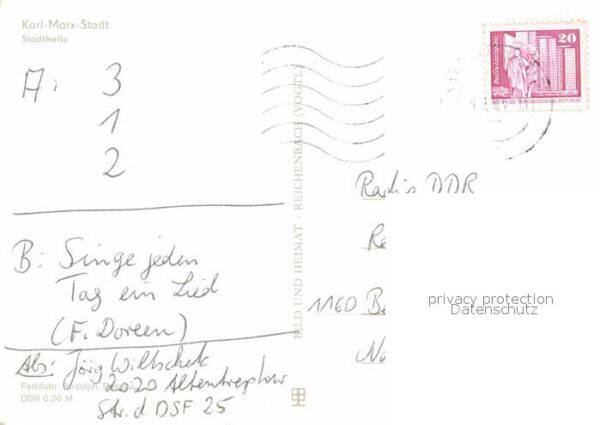 Karl-Marx-Stadt
Stadthalle
A: 3
1
2
B: Singe jeden
Tag ein Lied
(F. Doreen)
Abs: Jörg Wiltschek
2020 Altentreptow
Str. d. DSF 25
Farbfoto: Rudolph,
DDR 0,20 M
BILD UND HEIMAT · REICHENBACH (VOGTL)
Berlin-Leninplatz
20
Radio DDR
Re
1160 Be
Na
privacy protection
Datenschutz